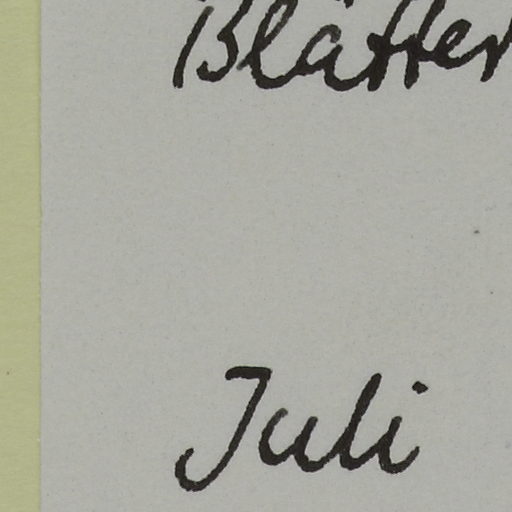 Blätter
Juli